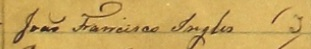 João Francisco Ingles